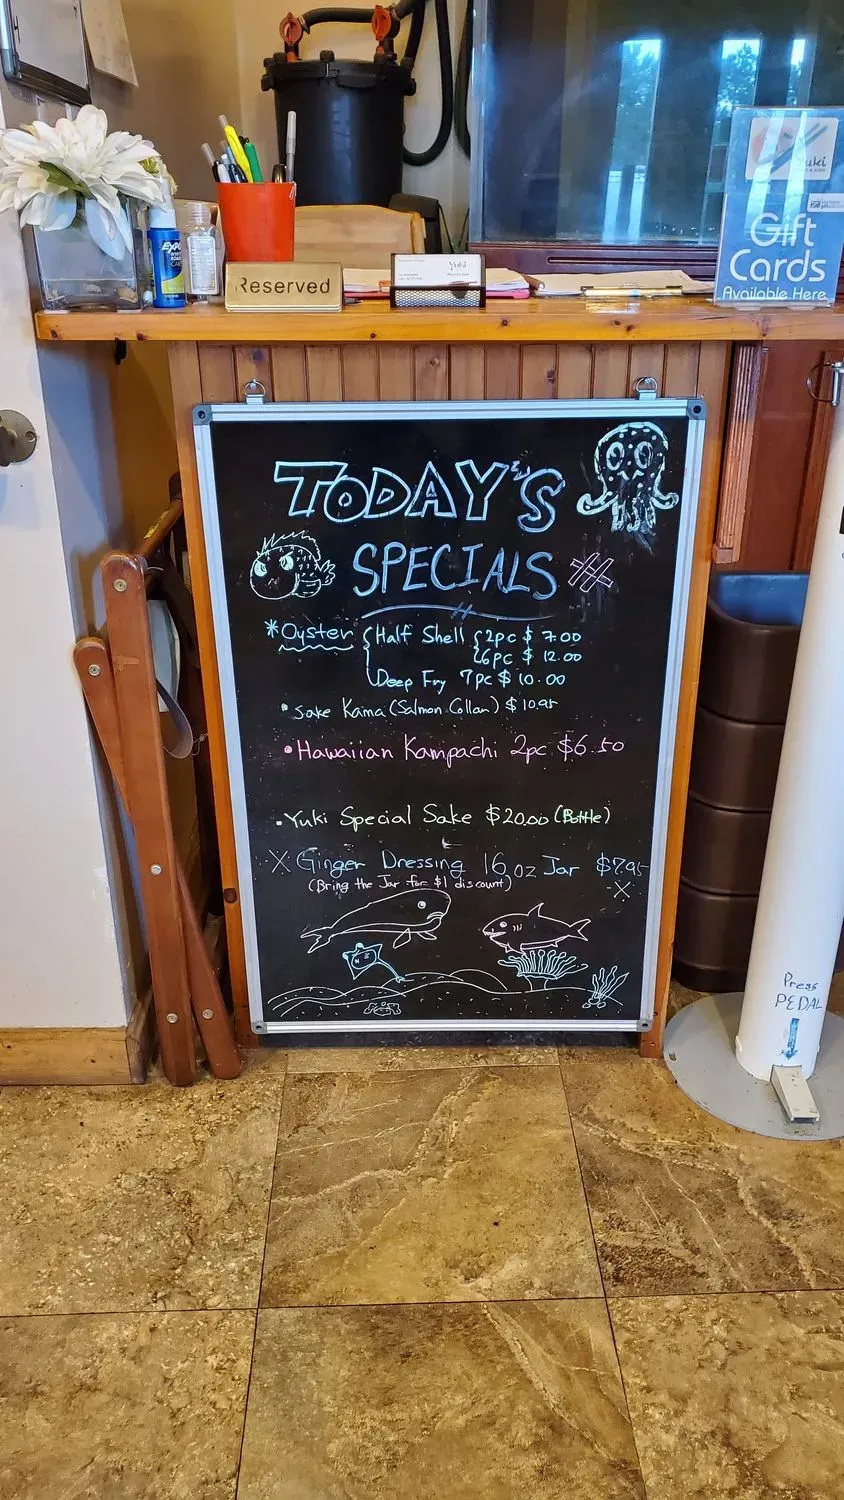 Yuki
Gift
Cards
Available Here
EXPO
Reserved
Yuki
TODAY'S
SPECIALS
*Oyster { Half Shell { 2pc $ 7.00
6pc $ 12.00
Deep Fry 7pc $ 10.00
• Sake Kama (Salmon Collar) $ 10.95
• Hawaiian Kampachi 2pc $6.50
• Yuki Special Sake $20.00 (Bottle)
X Ginger Dressing 16 oz Jar $7.95
(Bring the Jar for $1 discount) X
Press
PEDAL